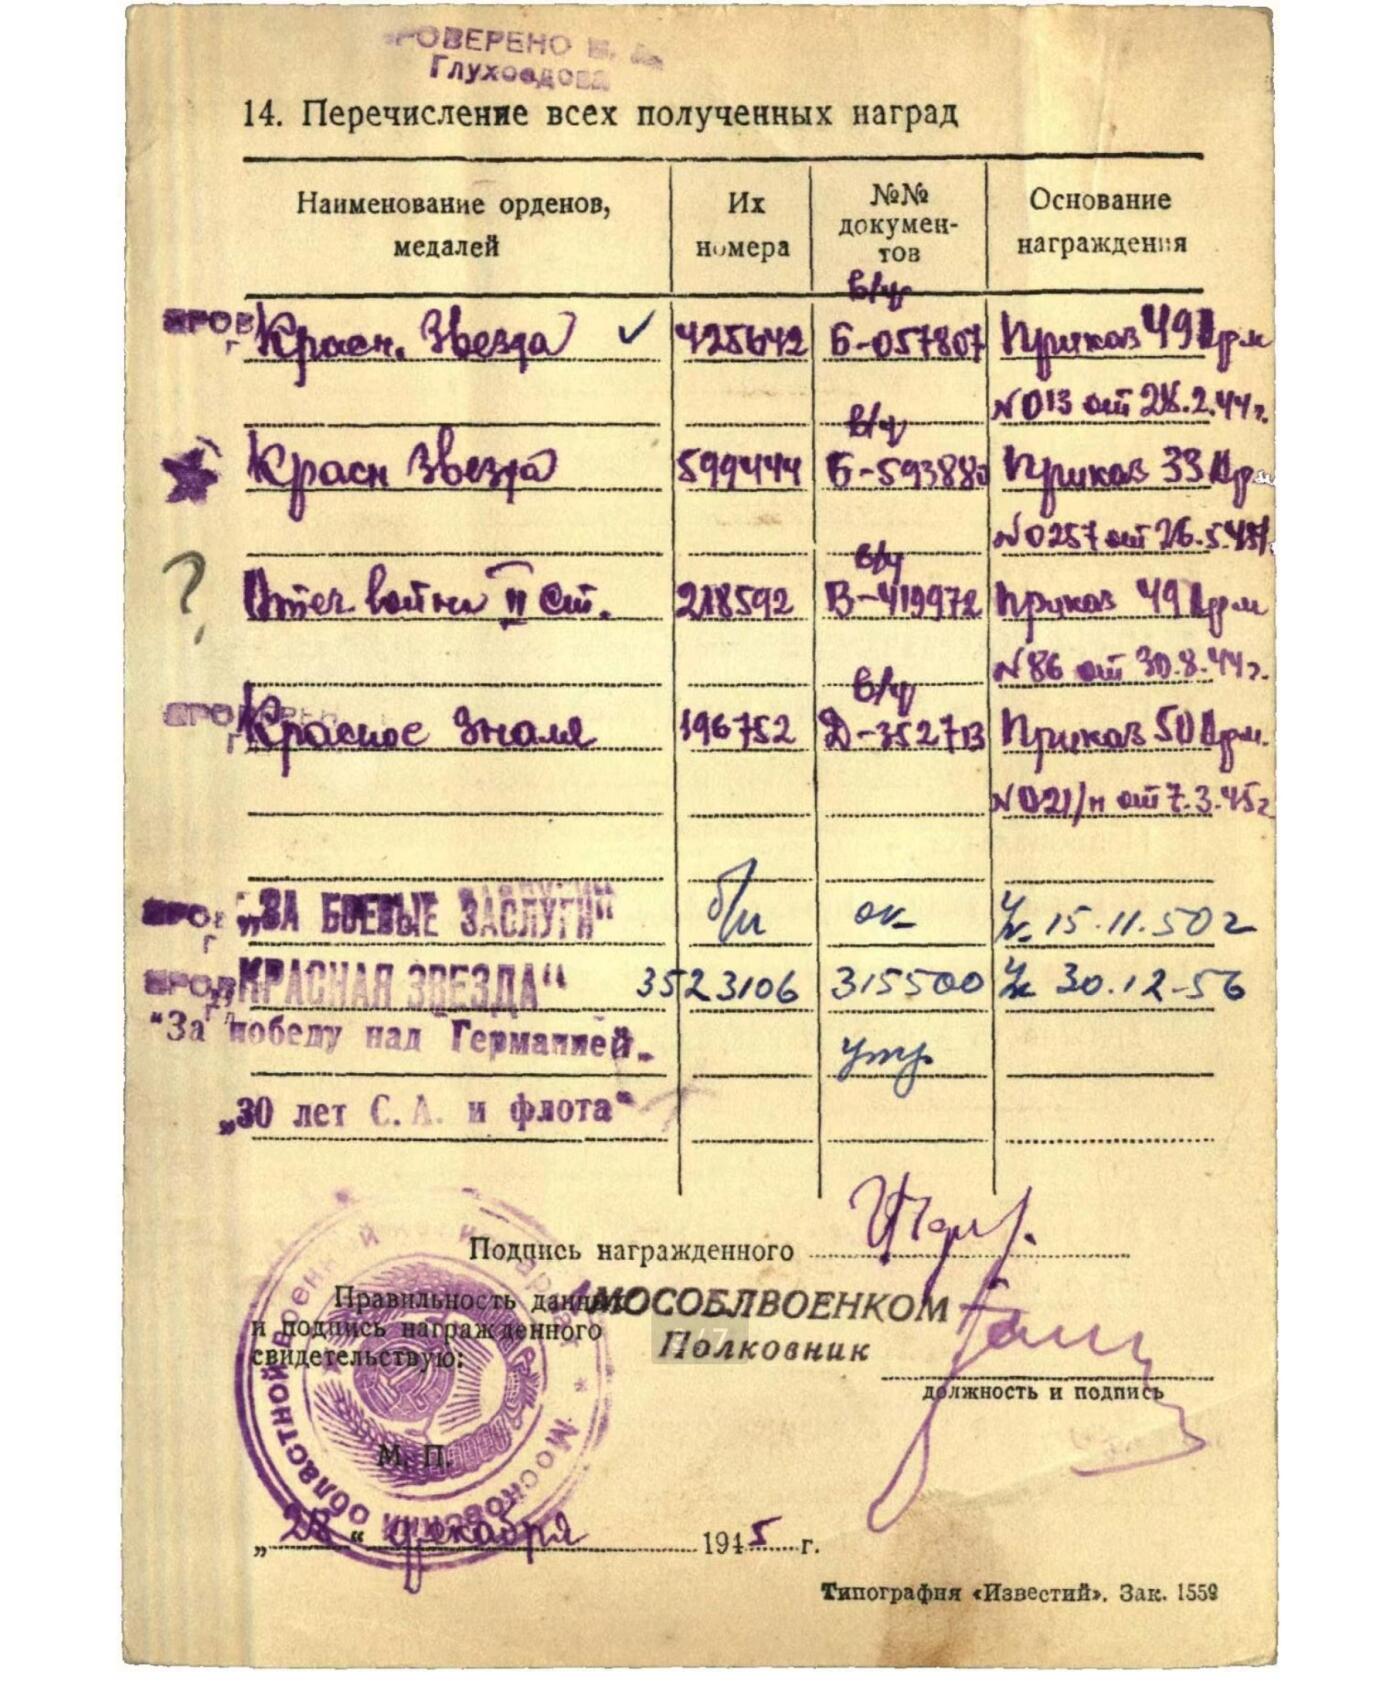 ПРОВЕРЕНО
Глуховцова
14. Перечисление всех полученных наград
Наименование орденов, медалей
Их номера
№№ документов
Основание награждения
в/ч
Красн. Звезда ✓ 425642 Б-057807 Приказ 49 Арм
№ 013 от 28.2.44г.
в/ч
Красн Звезда 599444 Б-593880 Приказ 33 Арм
№ 0257 от 26.5.45г
в/ч
? Отеч войны II ст. 218592 В-419972 Приказ 49 Арм
№ 86 от 30.8.44г.
в/ч
Красное Знамя 196752 Д-352713 Приказ 50 Арм.
№ 021/н от 7.3.45г
ПРОВ „ЗА БОЕВЫЕ ЗАСЛУГИ“ б/н ок Ук. 15.11.50г
ПРОВ „КРАСНАЯ ЗВЕЗДА“ 3523106 315500 Ук 30.12-56
"За победу над Германией" утр
„30 лет С. А. и флота"
Подпись награжденного
Правильность данных
и подпись награжденного
свидетельствую:
МОСОБЛВОЕНКОМ
Полковник
должность и подпись
М. П.
„28“ декабря 1945 г.
Типография «Известий». Зак. 1559